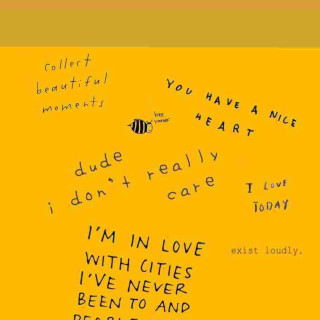 collect
beautiful
moments
YOU HAVE A NICE
HEART
dude
i don't really
care
I LOVE
TODAY
exist loudly.
I'M IN LOVE
WITH CITIES
I'VE NEVER
BEEN TO AND